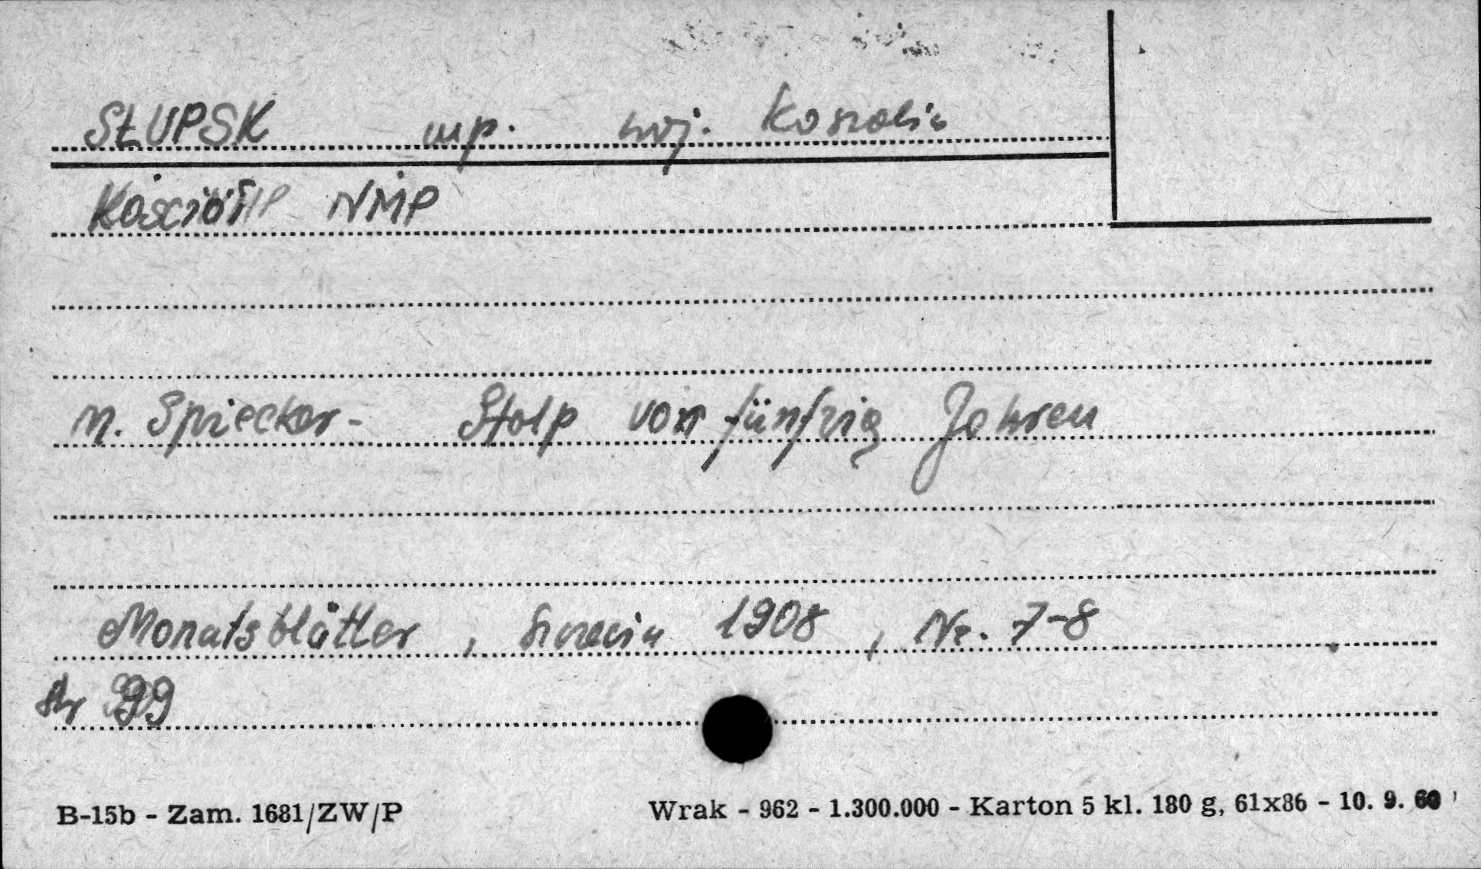 SŁUPSK mp. woj. Koszalin
Kościół NMP
M. Spiecker - Stolp vor fünfzig Jahren
Monatsblätter, Szczecin 1908, Nr. 7-8
str 99
B-15b - Zam. 1681/ZW/P Wrak - 962 - 1.300.000 - Karton 5 kl. 180 g, 61x86 - 10. 9. 60